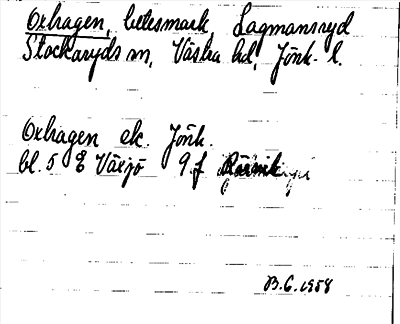 Oxhagen, betesmark, Lagmansryd
Stockaryds sn, Västra hd, Jönk. l.
Oxhagen ek. Jönk.
bl. 5 E Växjö 9 f
B.G. 1958